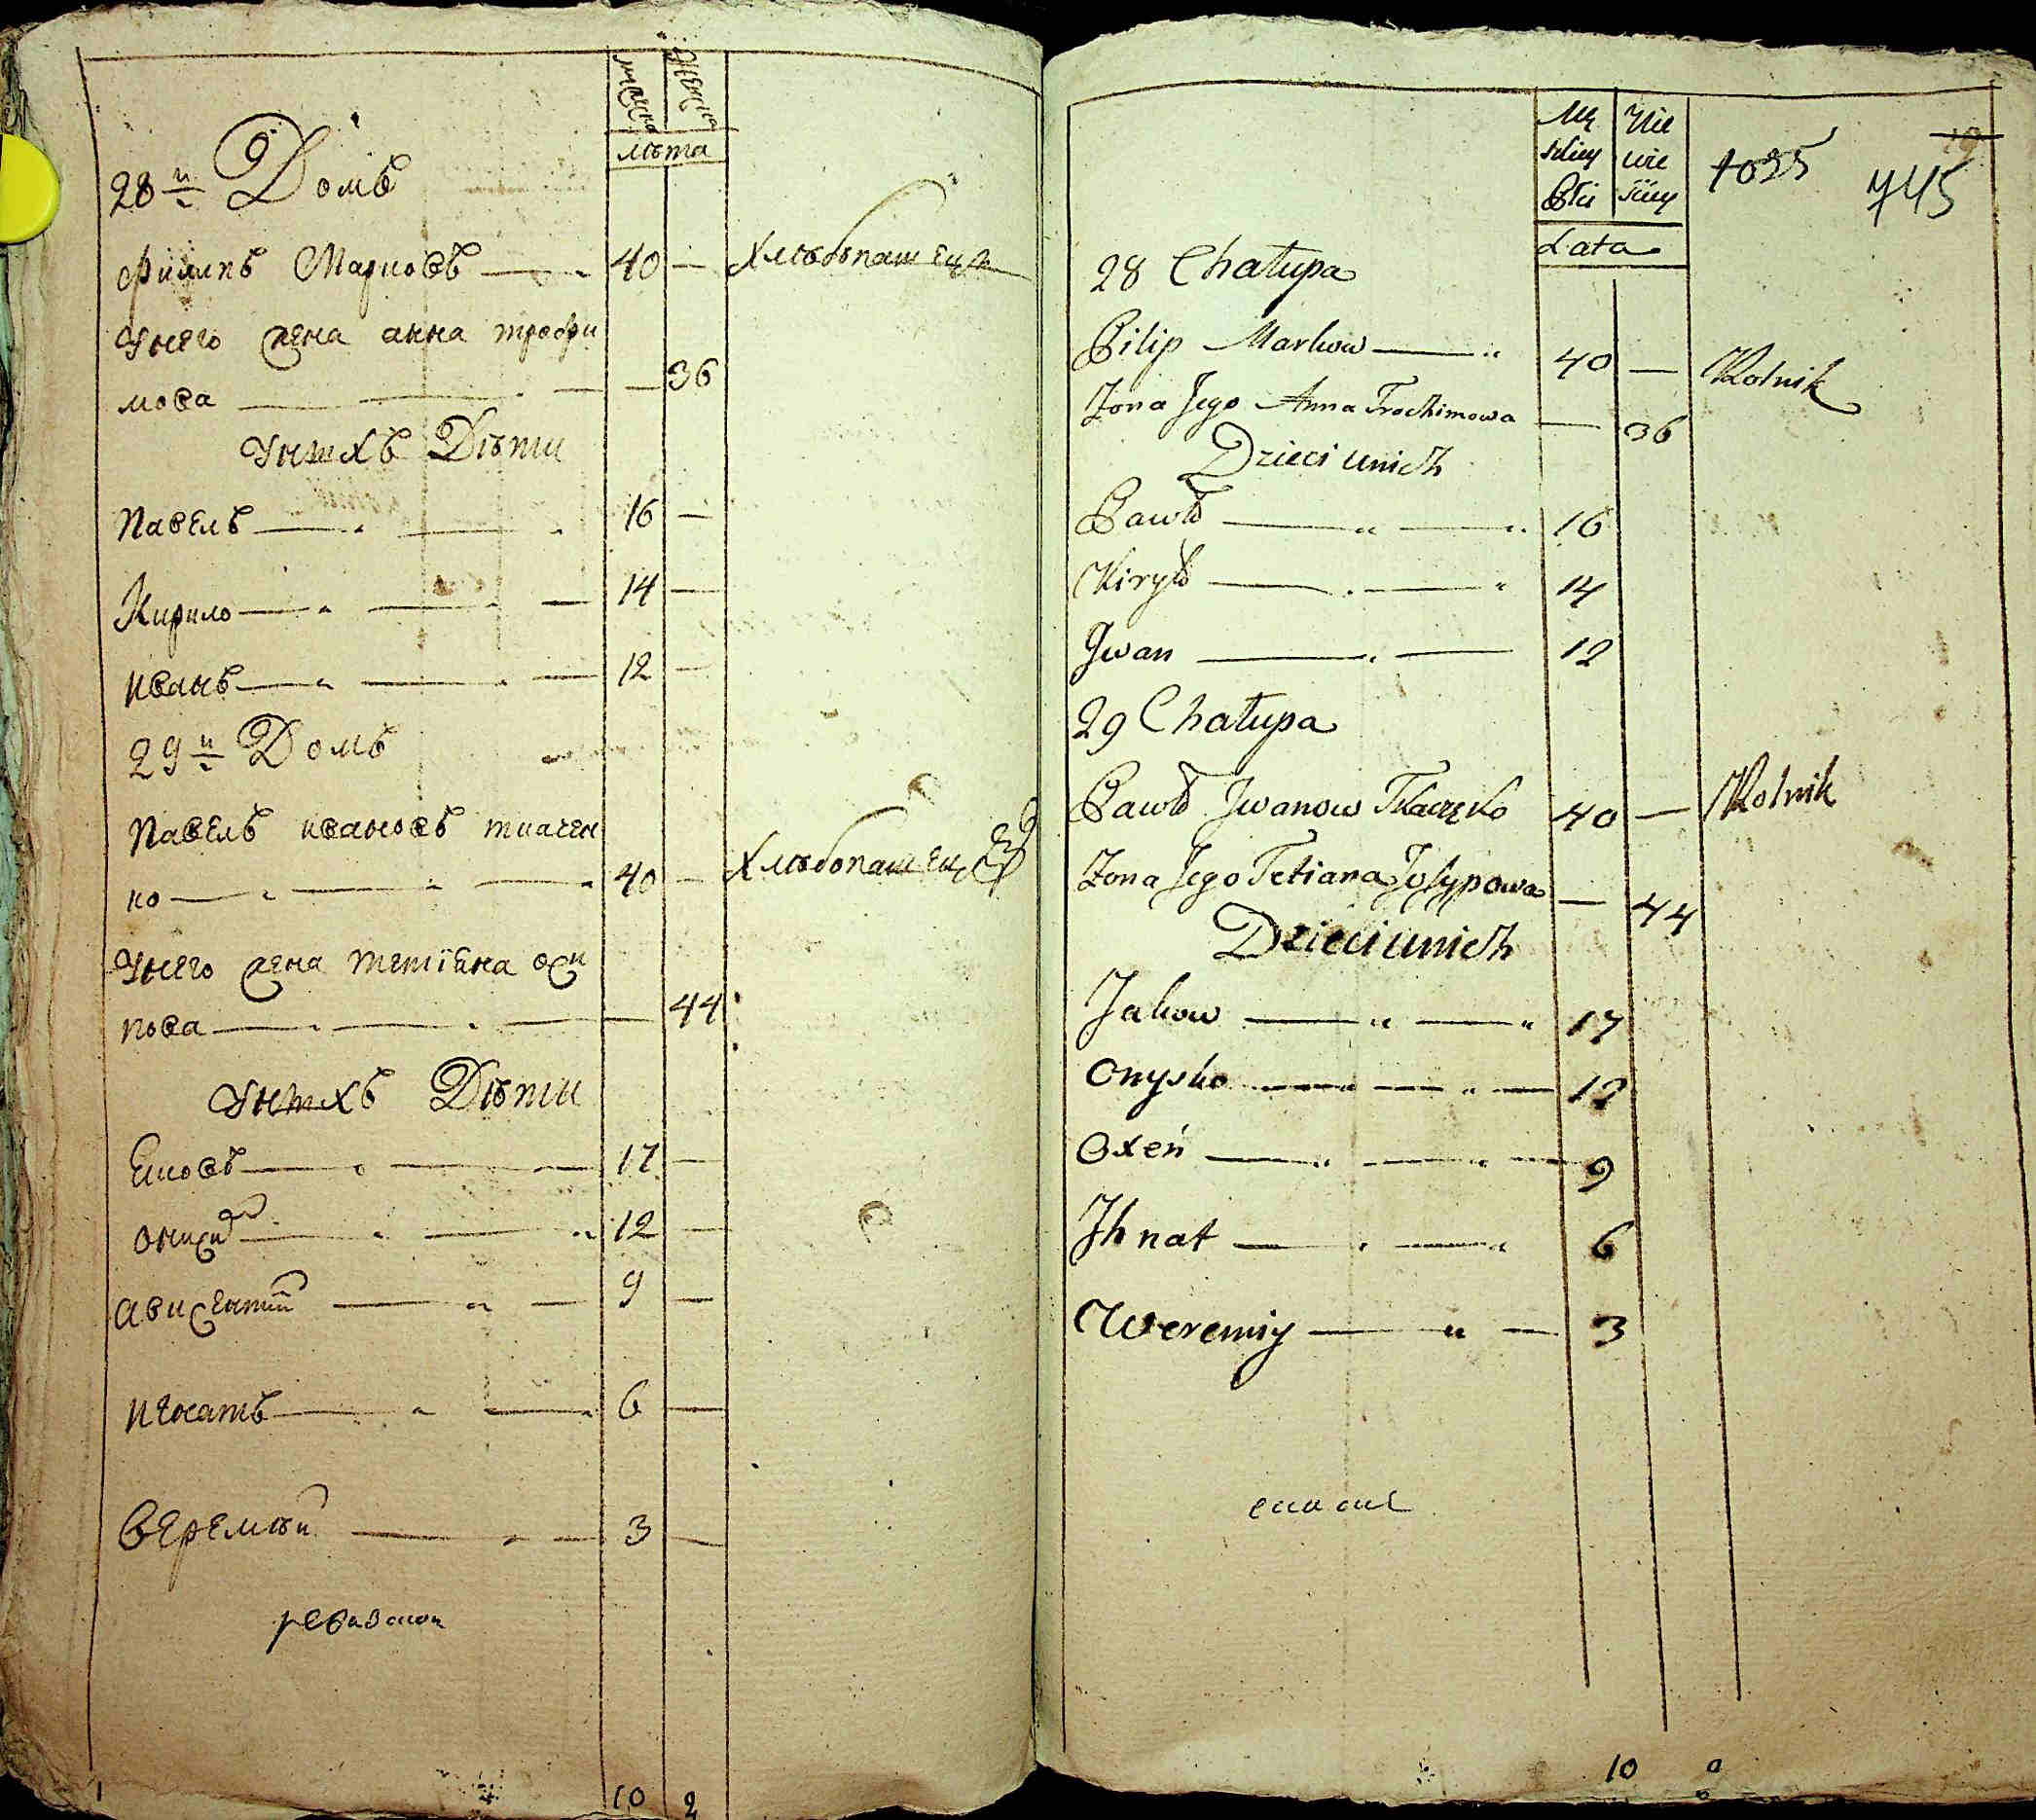 мужеска женска
лѣта
28й Домъ
Филипъ Марковъ — 40 — Хлѣбопашецъ
Унего жена анна трофи
мова — — 36
Унихъ Дѣти
Павелъ — 16 —
Кирило — 14 —
иванъ — 12 —
29й Домъ
Павелъ ивановъ ткачен
ко — 40 — Хлѣбопашецъ
Унего жена тетіяна оси
пова — — 44
Унихъ Дѣти
Яковъ — 17 —
Онисй — 12 —
Авиѯентій — 9 —
игнатъ — 6 —
Веремѣй — 3 —
ревизкои
10 2
Mę Nie
skiey wie
Płci ściey
Lata
1035 745
19
28 Chałupa
Pilip Markow — 40 — Rolnik
Zona Jego Anna Trochimowa — 36
Dzieci unich
Pawło — 16
Kiryło — 14
Jwan — 12
29 Chałupa
Pawło Jwanow Tkaczęko 40 — Rolnik
Zona Jego Tetiana Josypowa — 44
Dzieci unich
Jakow — 17
Onysko — 12
Oxeń — 9
Jhnat — 6
Weremiy — 3
10